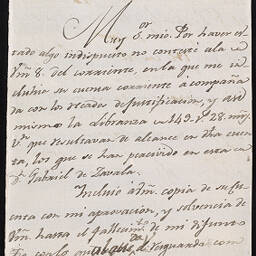 Muy S.or mio. Por haver es-
tado algo indispuesto no contesté a la de
Vm 8. del corriente, en la que me in-
cluhio su cuenta corriente acompaña-
da con los de justificación, y asi
mismo la Libranza de 149. p.s 28. mrs
V.n que resultavan de alcance en dha cuen-
ta, los que se han percivido en esta ca
D.n Gabriel de Zavala.
Incluio a Vm. copia de su cu-
enta con mi aprovacion, y solvencia de
Vm. hasta el fallecim.to de mi difunto
Tio con lo que